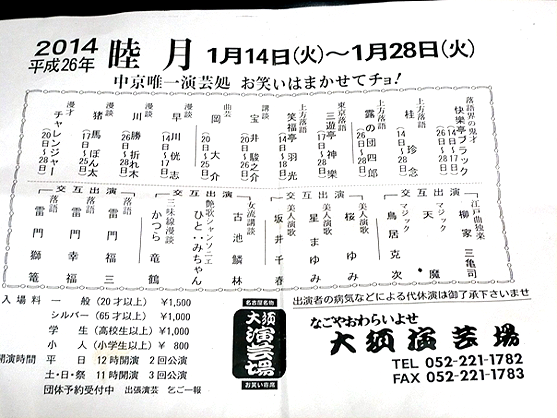 2014
平成26年
睦月
1月14日(火)～1月28日(火)
中京唯一演芸処 お笑いはまかせてチョ!
落語界の鬼才
快楽亭ブラック
上方落語
桂 珍念
上方落語
露の団四郎
(26日～28日)
東京落語
三遊亭神楽
上方落語
笑福亭羽光
講談
宝井駿之介
(20日～26日)
曲芸
岡 大介
(20日～25日)
漫談
早川侊志
(14日～17日)
漫談
川勝折れ木
漫談
猪馬ぽん太
漫才
チャレンジャー
交互出演
江戸曲独楽
柳家三亀司
マジック
天・魔
マジック
鳥居克次
交互出演
美人演歌
桜 ゆみ
美人演歌
星 まゆみ
美人演歌
坂井千春
女流講談
古池鱗林
交互出演
艶歌シャンソニエ
ひと:みちゃん
三味線漫談
かつら竜鶴
交互出演
落語
雷門福三
落語
雷門幸福
落語
雷門獅篭
出演者の病気などによる代休演は御了承下さいませ
入場料 一般 (20才以上) ¥1,500
シルバー (65才以上) ¥1,000
学生 (高校生以上) ¥1,000
小人 (小学生以上) ¥ 800
開演時間 平日 12時開演 2回公演
土・日・祭 11時開演 3回公演
団体予約受付中 出張演芸 乞ご一報
名古屋名物
大須演芸場
お笑い寄席
なごやおわらいよせ
大須演芸場
TEL 052-221-1782
FAX 052-221-1783